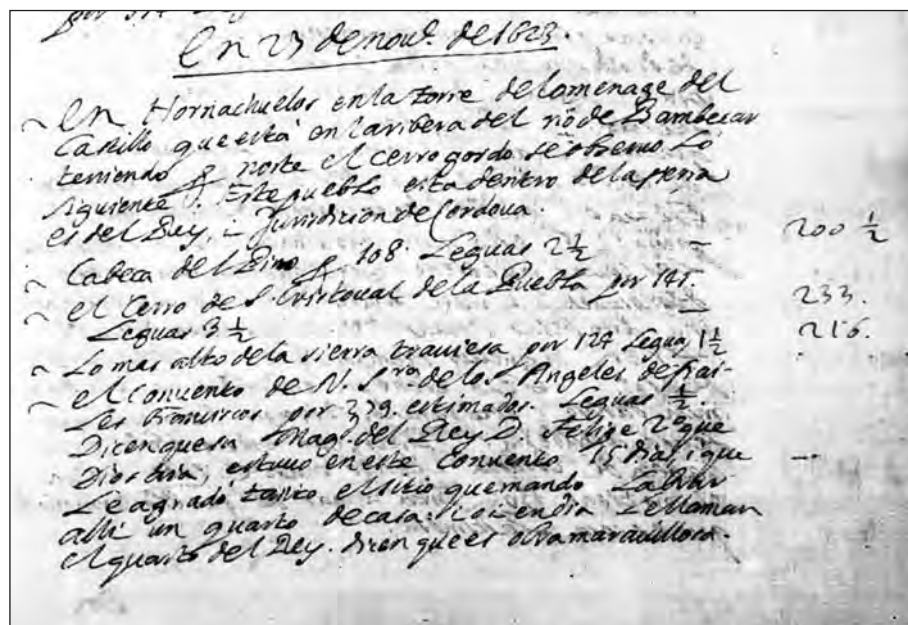 En 23 de nou.e de 1623.
~ En Hornachuelos en la torre del omenage del
Castillo que está en la ribera del rio de Bambecar
teniendo p norte el cerro gordo se obseruo Lo
siguiente. Este pueblo esta dentro de la sierra
es del Rey, i Jurisdicion de Cordoua.
~ Cabeca del Pino p 108. Leguas 2 1/2 ~ 200 1/2
~ el Cerro de S. Cristoual de la Puebla por 141.
Leguas 3 1/2 — 233.
~ Lo mas alto de la sierra trauiesa por 124 Legua 1 1/2 216.
~ el Conuento de N. S.ra de los Angeles de frai-
les por 339. estimados. Leguas 1/2.
Dicen que su Mag.d del Rey D. Felipe 2º que
Dios aia, estuuo en este Conuento 15 dias, i que —
Le agradó tanto el sitio que mando Labrar
alli un quarto de casa. i oi en dia Le llaman
el quarto del Rey. dicen que es obra marauillosa.